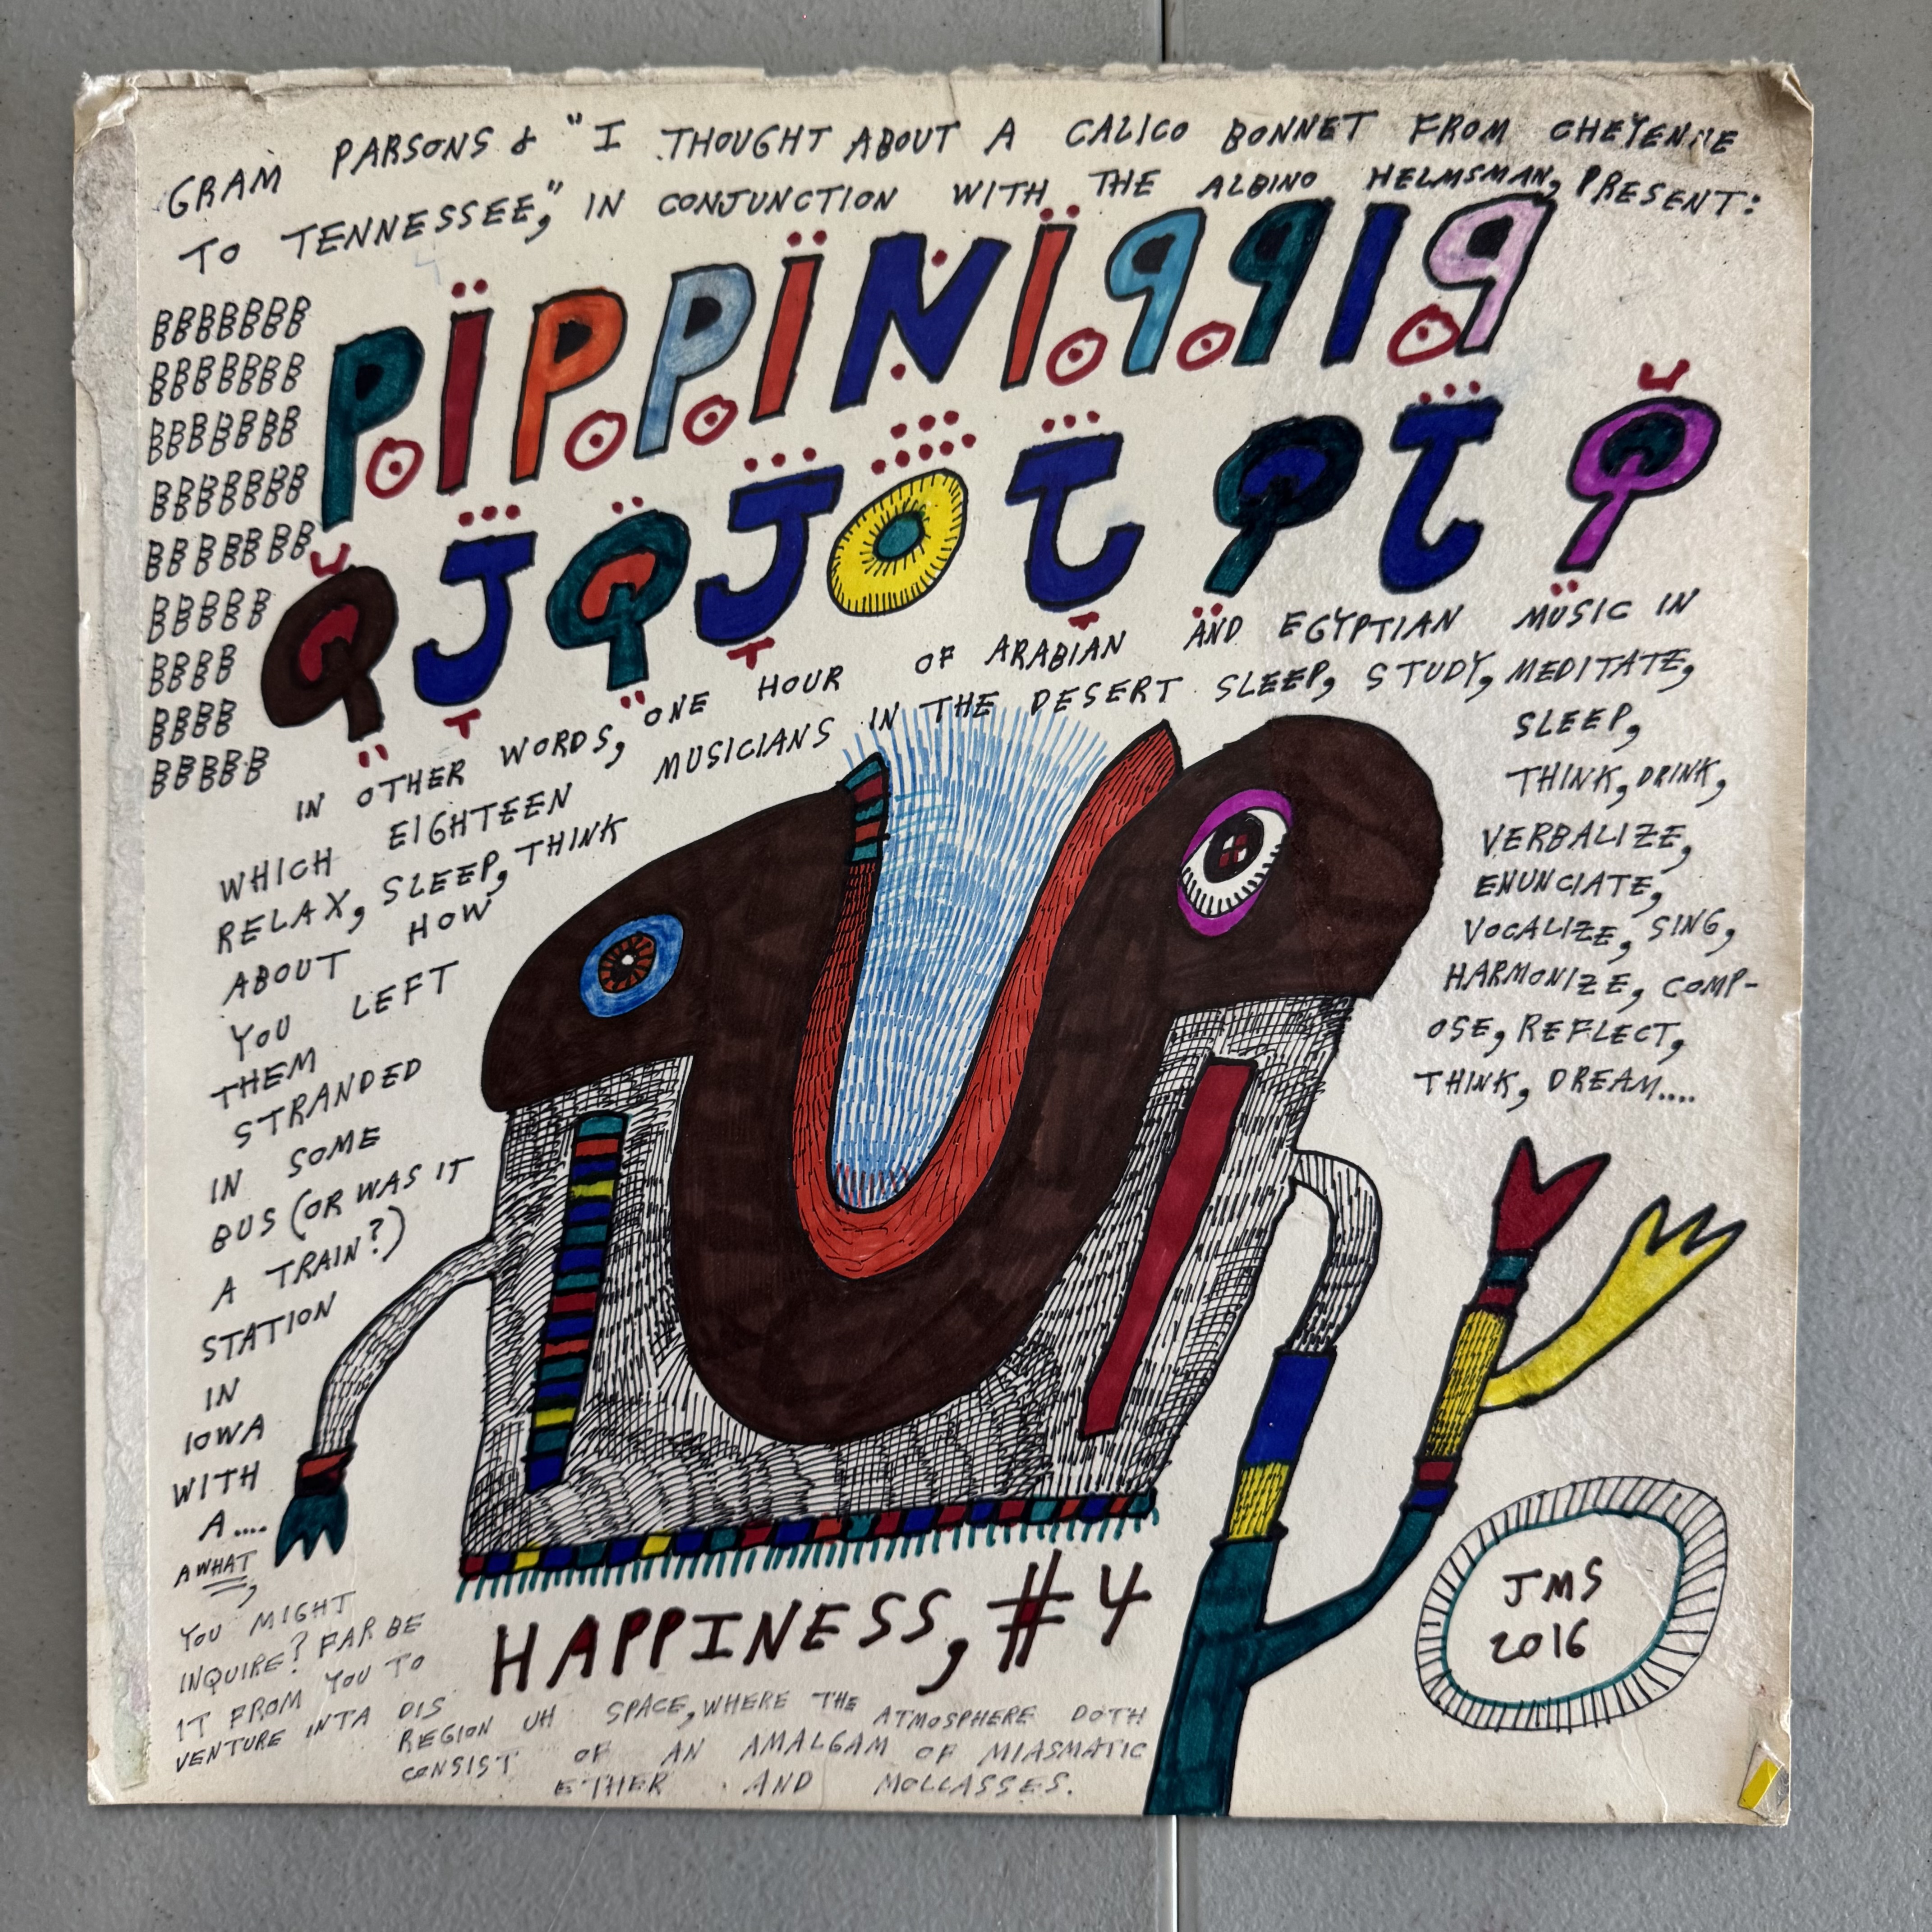 GRAM PARSONS & "I THOUGHT ABOUT A CALICO BONNET FROM CHEYENNE
TO TENNESSEE," IN CONJUNCTION WITH THE ALBINO HELMSMAN, PRESENT:
BBBBBBB
BBBBBBB
BBBBBBB
BBBBBBB
BBBBBBB
BBBBB
BBBB
BBBB
BBBBB
PÏPPÏNÏqqIq
QJQJOTQTQ
IN OTHER WORDS, ONE HOUR OF ARABIAN AND EGYPTIAN MUSIC IN
WHICH EIGHTEEN MUSICIANS IN THE DESERT SLEEP, STUDY, MEDITATE,
RELAX, SLEEP, THINK
ABOUT HOW
YOU LEFT
THEM
STRANDED
IN SOME
BUS (OR WAS IT
A TRAIN?)
STATION
IN
IOWA
WITH
A....
A WHAT,
YOU MIGHT
INQUIRE? FAR BE
IT FROM YOU TO
VENTURE INTA DIS
REGION UH SPACE, WHERE THE ATMOSPHERE DOTH
CONSIST OF AN AMALGAM OF MIASMATIC
ETHER AND MOLLASSES.
SLEEP,
THINK, DRINK,
VERBALIZE,
ENUNCIATE,
VOCALIZE, SING,
HARMONIZE, COMP-
OSE, REFLECT,
THINK, DREAM....
HAPPINESS, #4
JMS
2016